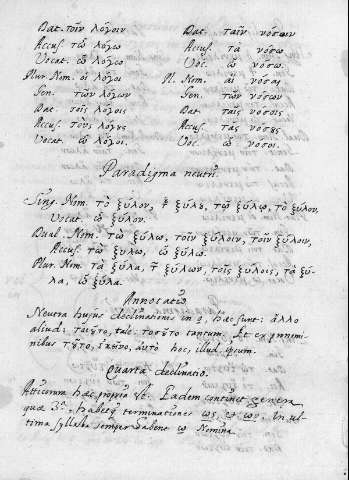 Dat. τοῖν λόγοιν Dat. ταῖν νόσοιν
Accus. τὼ λόγω Accus. τὰ νόσω
Vocat. ὦ λόγω Voc. ὦ νόσω.
Plur. Nom. οἱ λόγοι Pl. Nom. αἱ νόσοι
Gen. τῶν λόγων Gen. τῶν νόσων
Dat. τοῖς λόγοις Dat. ταῖς νόσοις
Accus. τοὺς λόγους Accus. τὰς νόσους
Vocat. ὦ λόγοι. Voc. ὦ νόσοι.
Paradigma neutri.
Sing. Nom. τὸ ξύλον, ξύλου, τῷ ξύλῳ, τὸ ξύλον.
Vocat. ὦ ξύλον.
Dual. Nom. τὼ ξύλω, τοῖν ξύλοιν, τοῖν ξύλοιν,
Accus. τὼ ξύλω, ὦ ξύλω.
Plur. Nom. τὰ ξύλα, ξύλων, τοῖς ξύλοις, τὰ ξύ-
λα, ὦ ξύλα.
Annotatio
Neutra hujus declinationis in o, haec sunt: ἄλλο
aliud: τοιοῦτο, tale: τοσοῦτο tantum. Et ex pronomi-
nibus τοῦτο, ἐκεῖνο, αὐτὸ hoc, illud, ipsum.
Quarta declinatio.
Atticorum haec propria Eadem continet genera
quae 3.ª habetq terminationes ως et ων. In ul-
tima syllaba semper habent ω Nomina